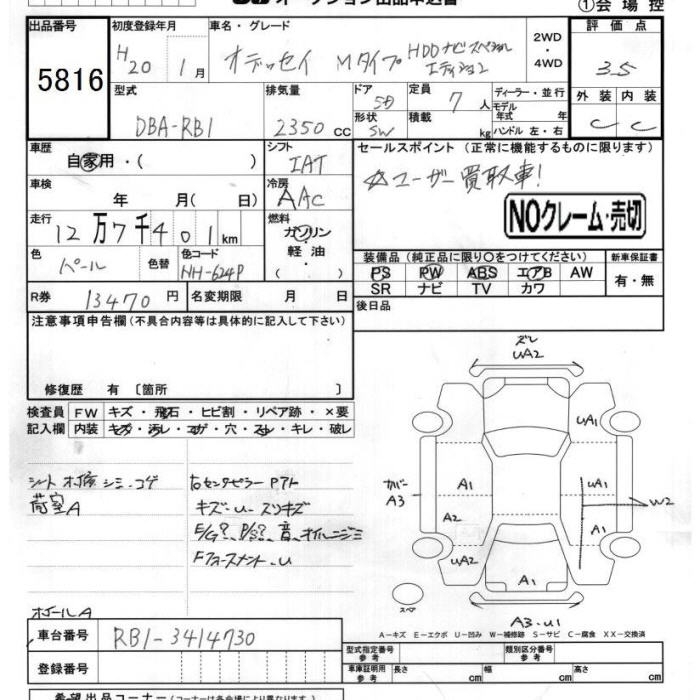 オークション出品申込書
①会場控
出品番号
5816
初度登録年月
H20 1月
車名・グレード
オデッセイ Mタイプ HDDナビスペシャル
エディション
2WD
・
4WD
評価点
3.5
型式
DBA-RB1
排気量
2350 CC
ドア
5D
形状
SW
定員
7 人
積載
kg
ディーラー・並行
モデル
年式 年
ハンドル 左・右
外装 内装
C C
車歴
自家用・( )
シフト
IAT
セールスポイント (正常に機能するものに限ります)
☆ユーザー買取車!
NOクレーム・売切
車検
年 月( 日)
冷房
AAC
走行
12万7千401km
燃料
ガソリン
軽油・
色
パール
色替
色コード
NH-624P
装備品 (純正品に限り○をつけてください)
PS PW ABS エアB AW
SR ナビ TV カワ
新車保証書
有・無
R券
13470 円
名変期限 月 日
後日品
注意事項申告欄 (不具合内容等は具体的に記入して下さい)
修復歴 有 〔箇所 〕
検査員
記入欄
FW キズ・飛石・ヒビ割・リペア跡・×要
内装 キズ・汚レ・コゲ・穴・スレ・キレ・破レ
シート シミ・コゲ
荷室A
右センタピラー Pアト
キズ・U・スリキズ
E/G?、P/S?、音、オイルニジミ
U
ホイールA
ズレ
UA2
UA1
カバー
A3
A1
UA1
W2
A2
A1
UA2
A1
スペア
A3・U1
A-キズ E-エクボ U-凹み W-補修跡 S-サビ C-腐食 XX-交換済
車台番号
RB1-3414730
登録番号
型式指定番号
参考
類別区分番号
参考
車両証明用
参考
長さ cm 幅 cm 高さ cm
希望出品コーナー(コーナーは各会場により異なります)